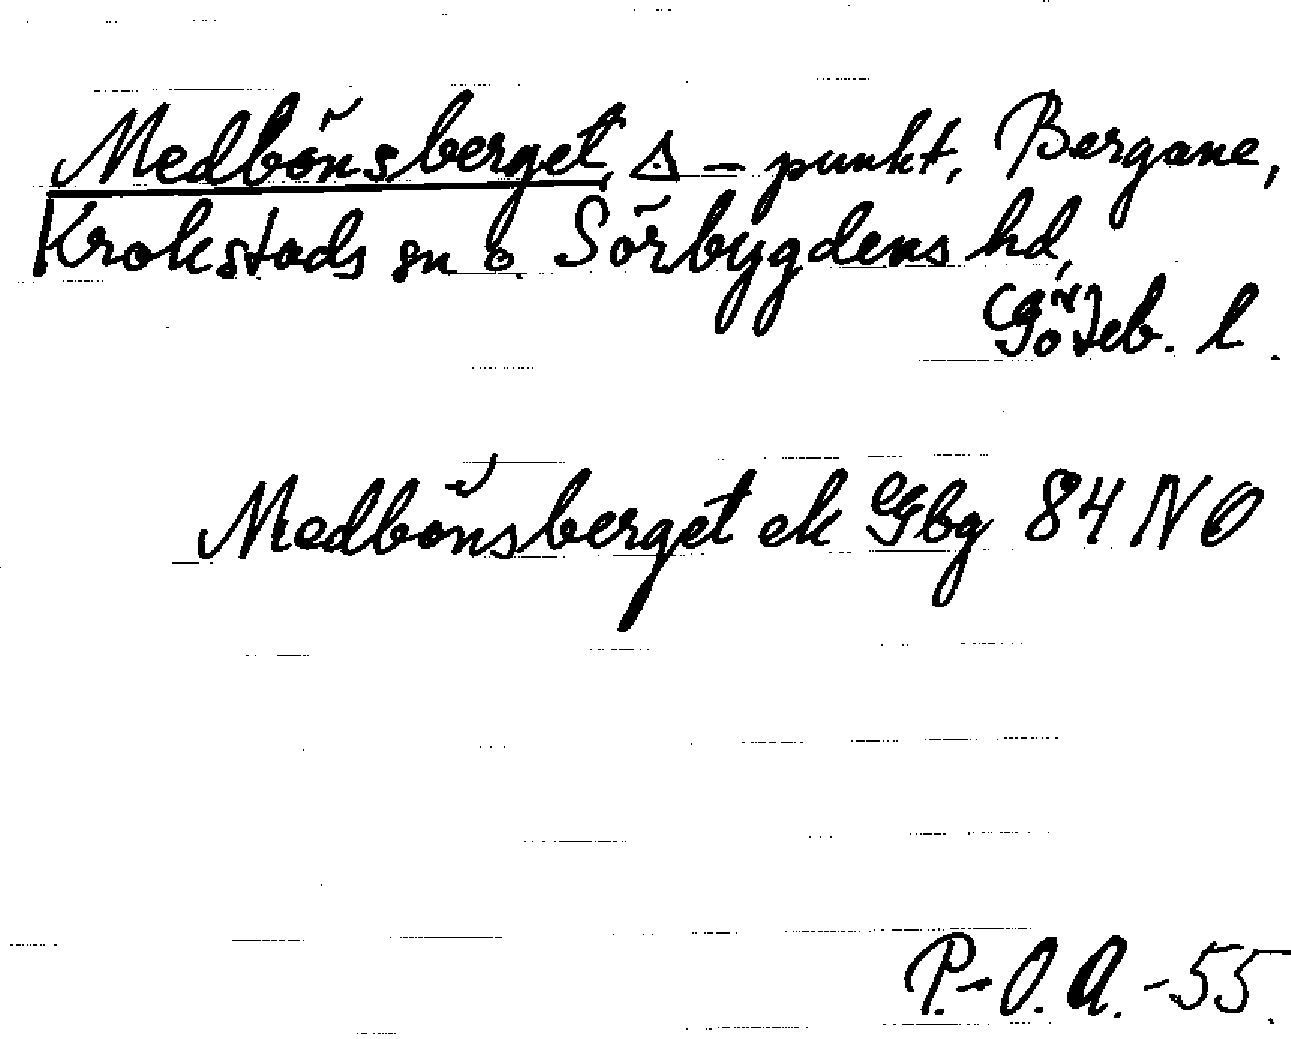 Medbönsberget, △ - punkt, Bergane,
Krokstads sn o. Sörbygdens hd,
Göteb. l.
Medbönsberget ek Gbg 84 NO
P.-O. A. -55.